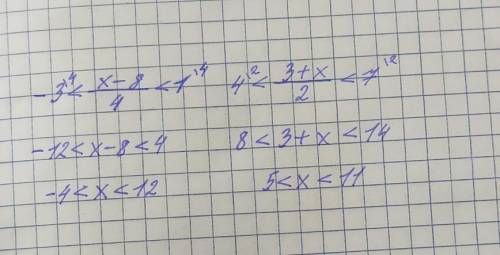 -3^{\4} < \frac{x-8}{4} < 1^{\4}
-12 < x-8 < 4
-4 < x < 12
4^{\2} < \frac{3+x}{2} < 7^{\2}
8 < 3+x < 14
5 < x < 11